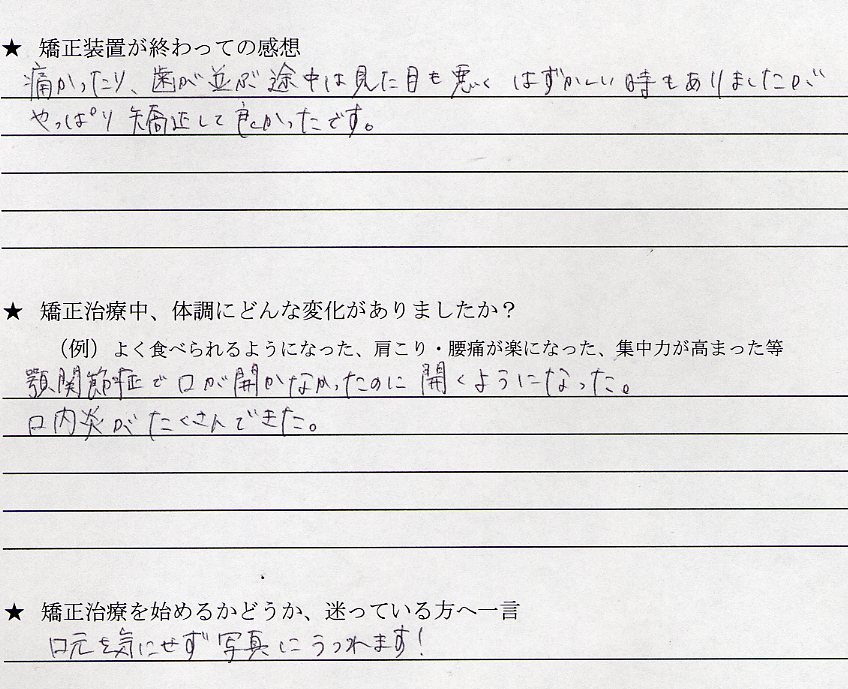 ★ 矯正装置が終わっての感想
痛かったり、歯が並ぶ途中は見た目も悪く はずかしい時もありましたが
やっぱり 矯正して良かったです。
★ 矯正治療中、体調にどんな変化がありましたか？
（例）よく食べられるようになった、肩こり・腰痛が楽になった、集中力が高まった等
顎関節症で口が開かなかったのに 開くようになった。
口内炎がたくさんできた。
★ 矯正治療を始めるかどうか、迷っている方へ一言
口元を気にせず 写真にうつれます！